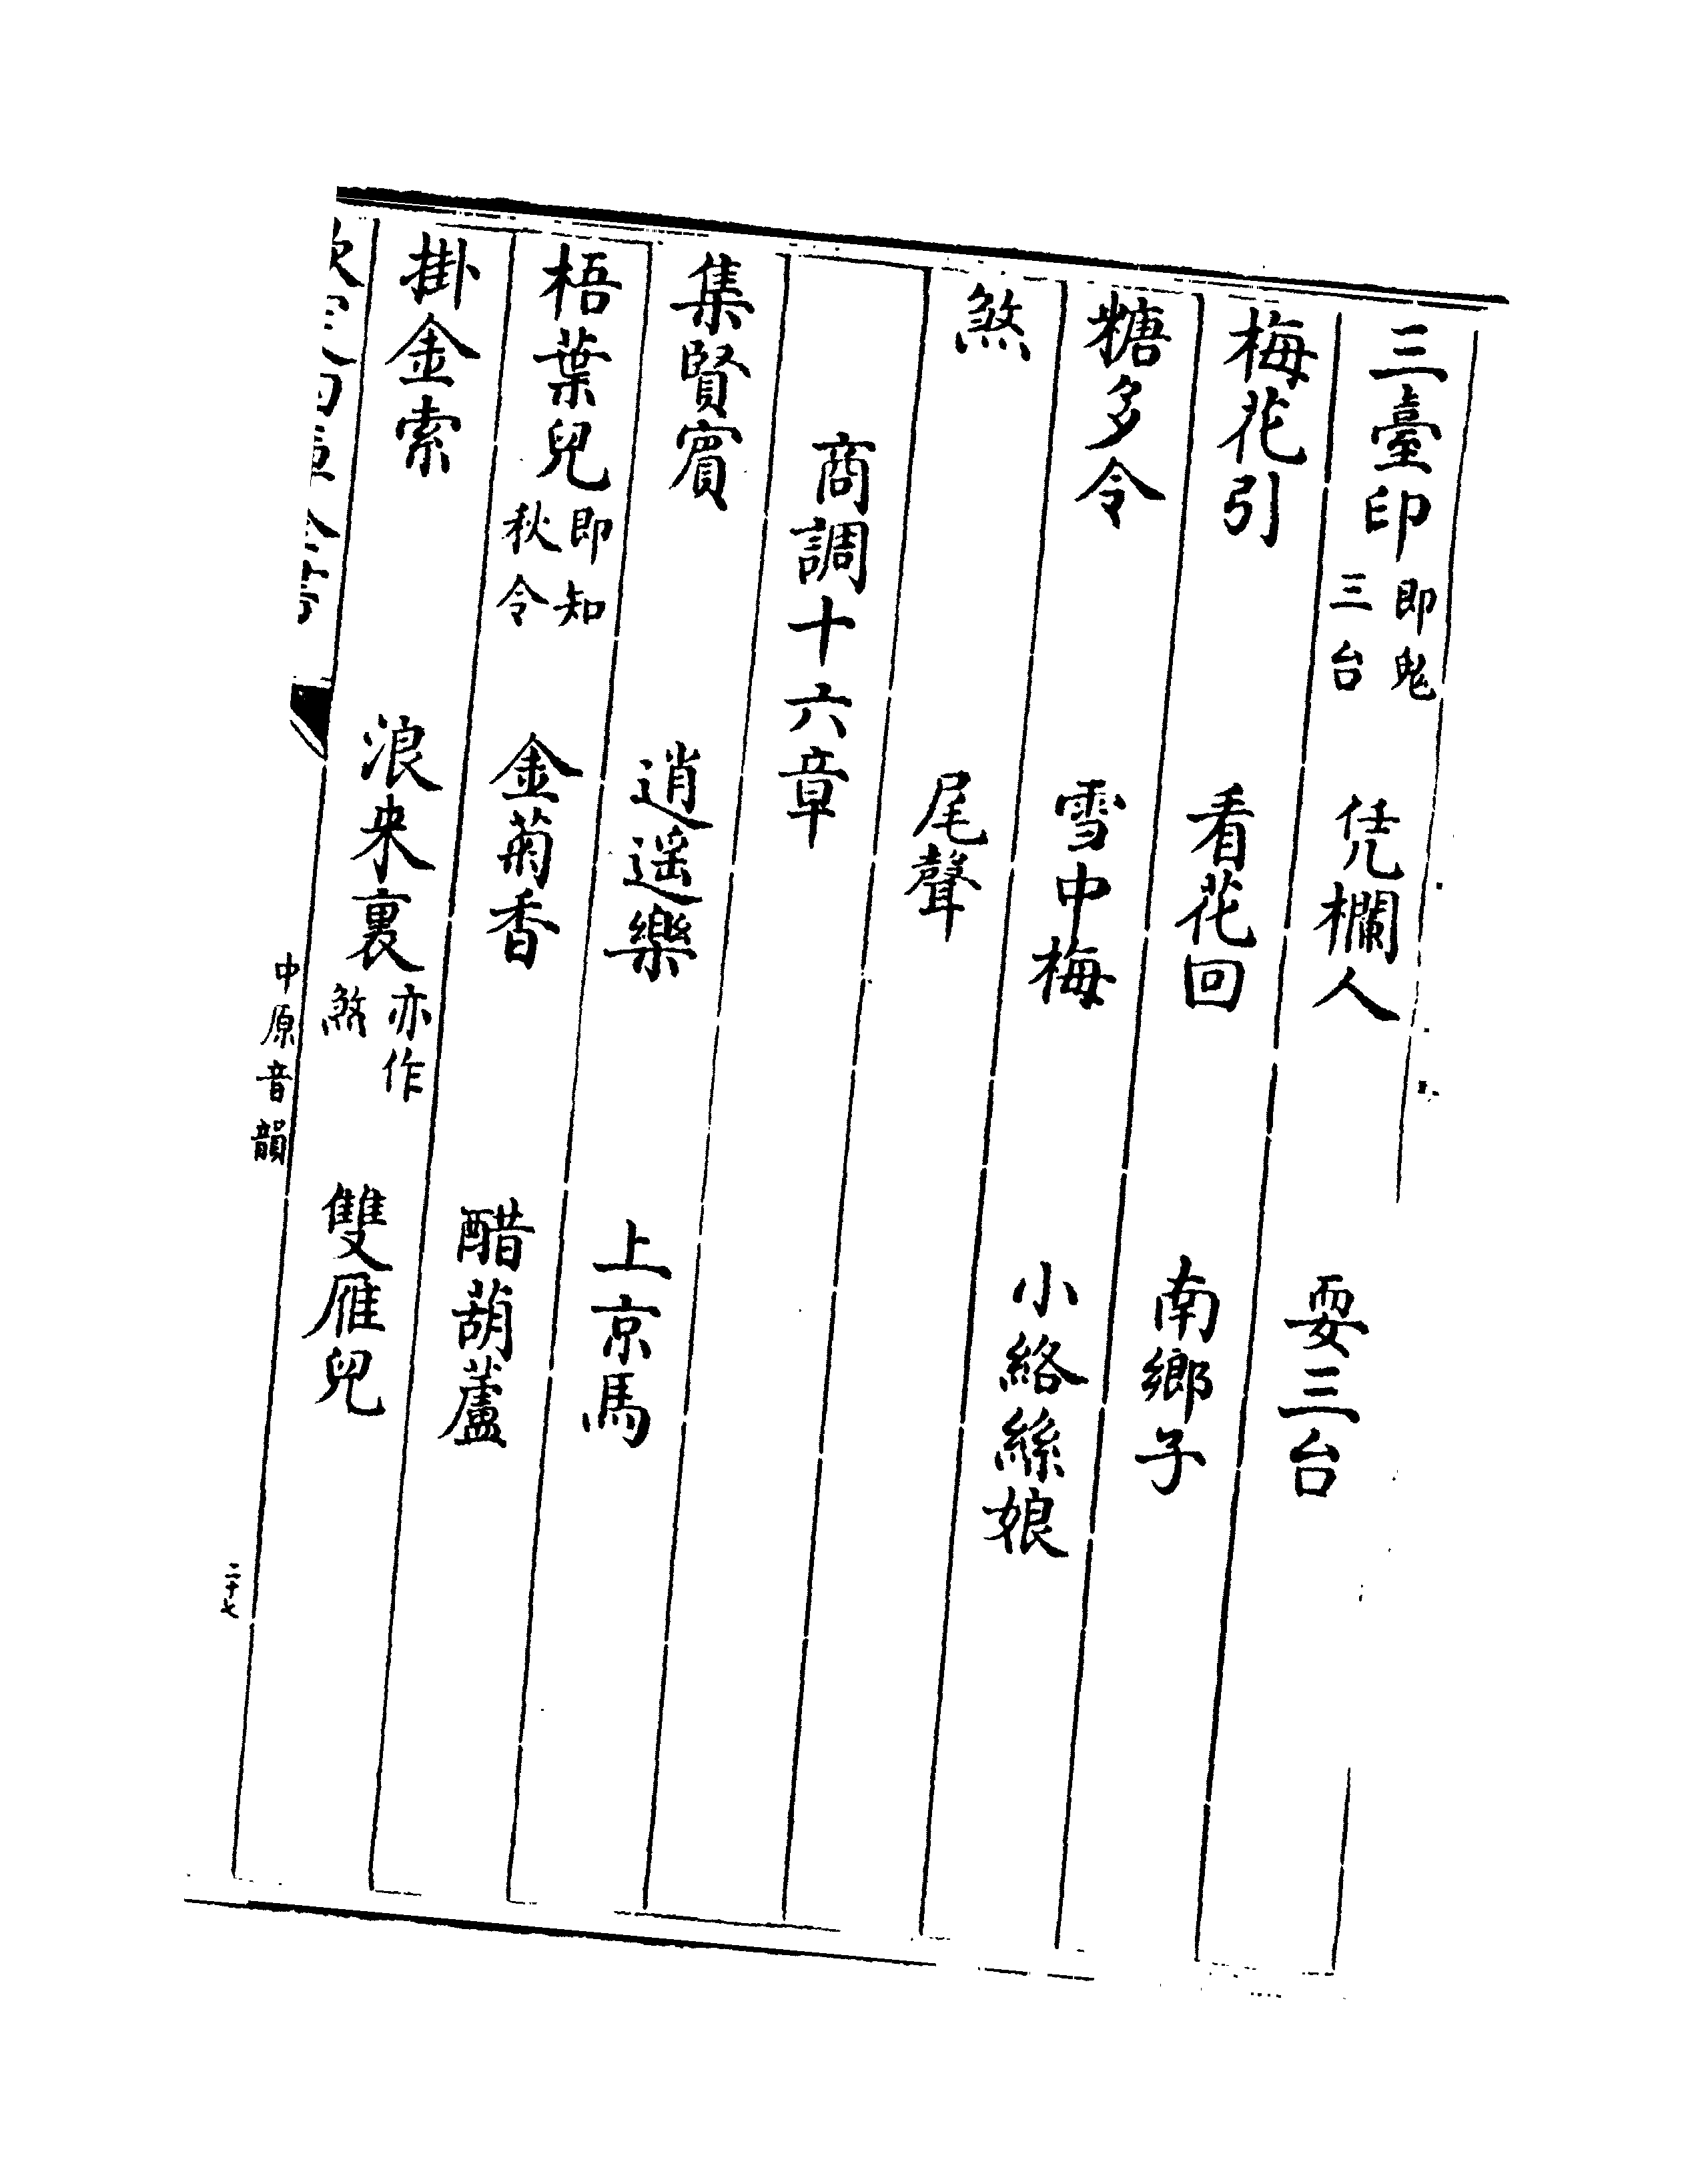 三臺印即鬼三台　凭欄人　耍三台
梅花引　看花回　南鄉子
糖多令　雪中梅　小絡絲娘
煞　尾聲
商調十六章
集賢賓　逍遥樂　上京馬
梧葉兒即知秋令　金菊香　醋葫蘆
掛金索　浪来裏亦作煞　雙雁兒
中原音韻
二十七